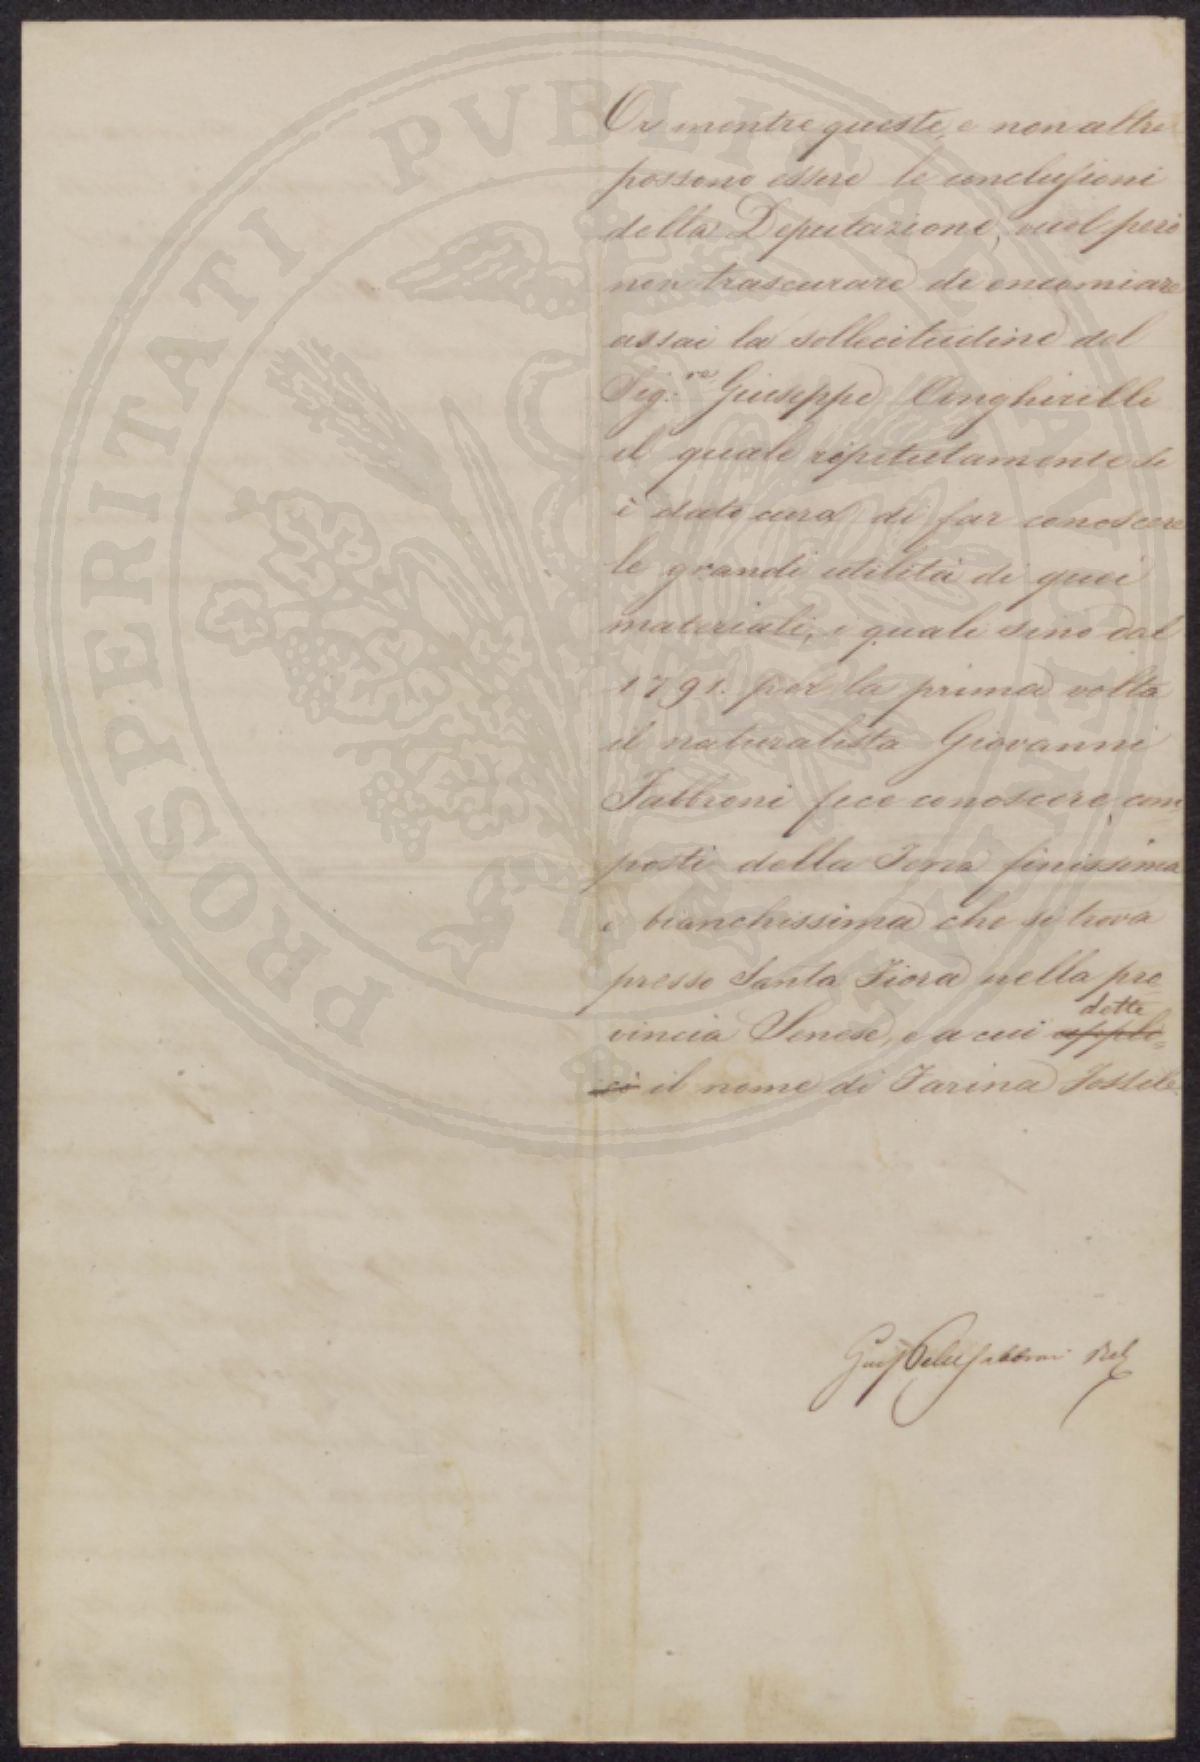 Or mentre queste, e non altre
possono essere le conclusioni
della Deputazione, vuol però
non trascurare di encomiare
assai la sollecitudine del
Sig.re Giuseppe Inghirilli
il quale ripetutamente si
è dato cura di far conoscere
le grandi utilità di quei
materiali, i quali sino dal
1791. per la prima volta
il naturalista Giovanni
Fabbroni fece conoscere, com
posti della Terra finissima
e bianchissima che si trova
presso Santa Fiora nella pro
vincia Senese, e a cui appli= dette
cò il nome di Farina Fossile.
Fabbroni Rel
PROSPERITATI PVBLICAE AVGENDAE